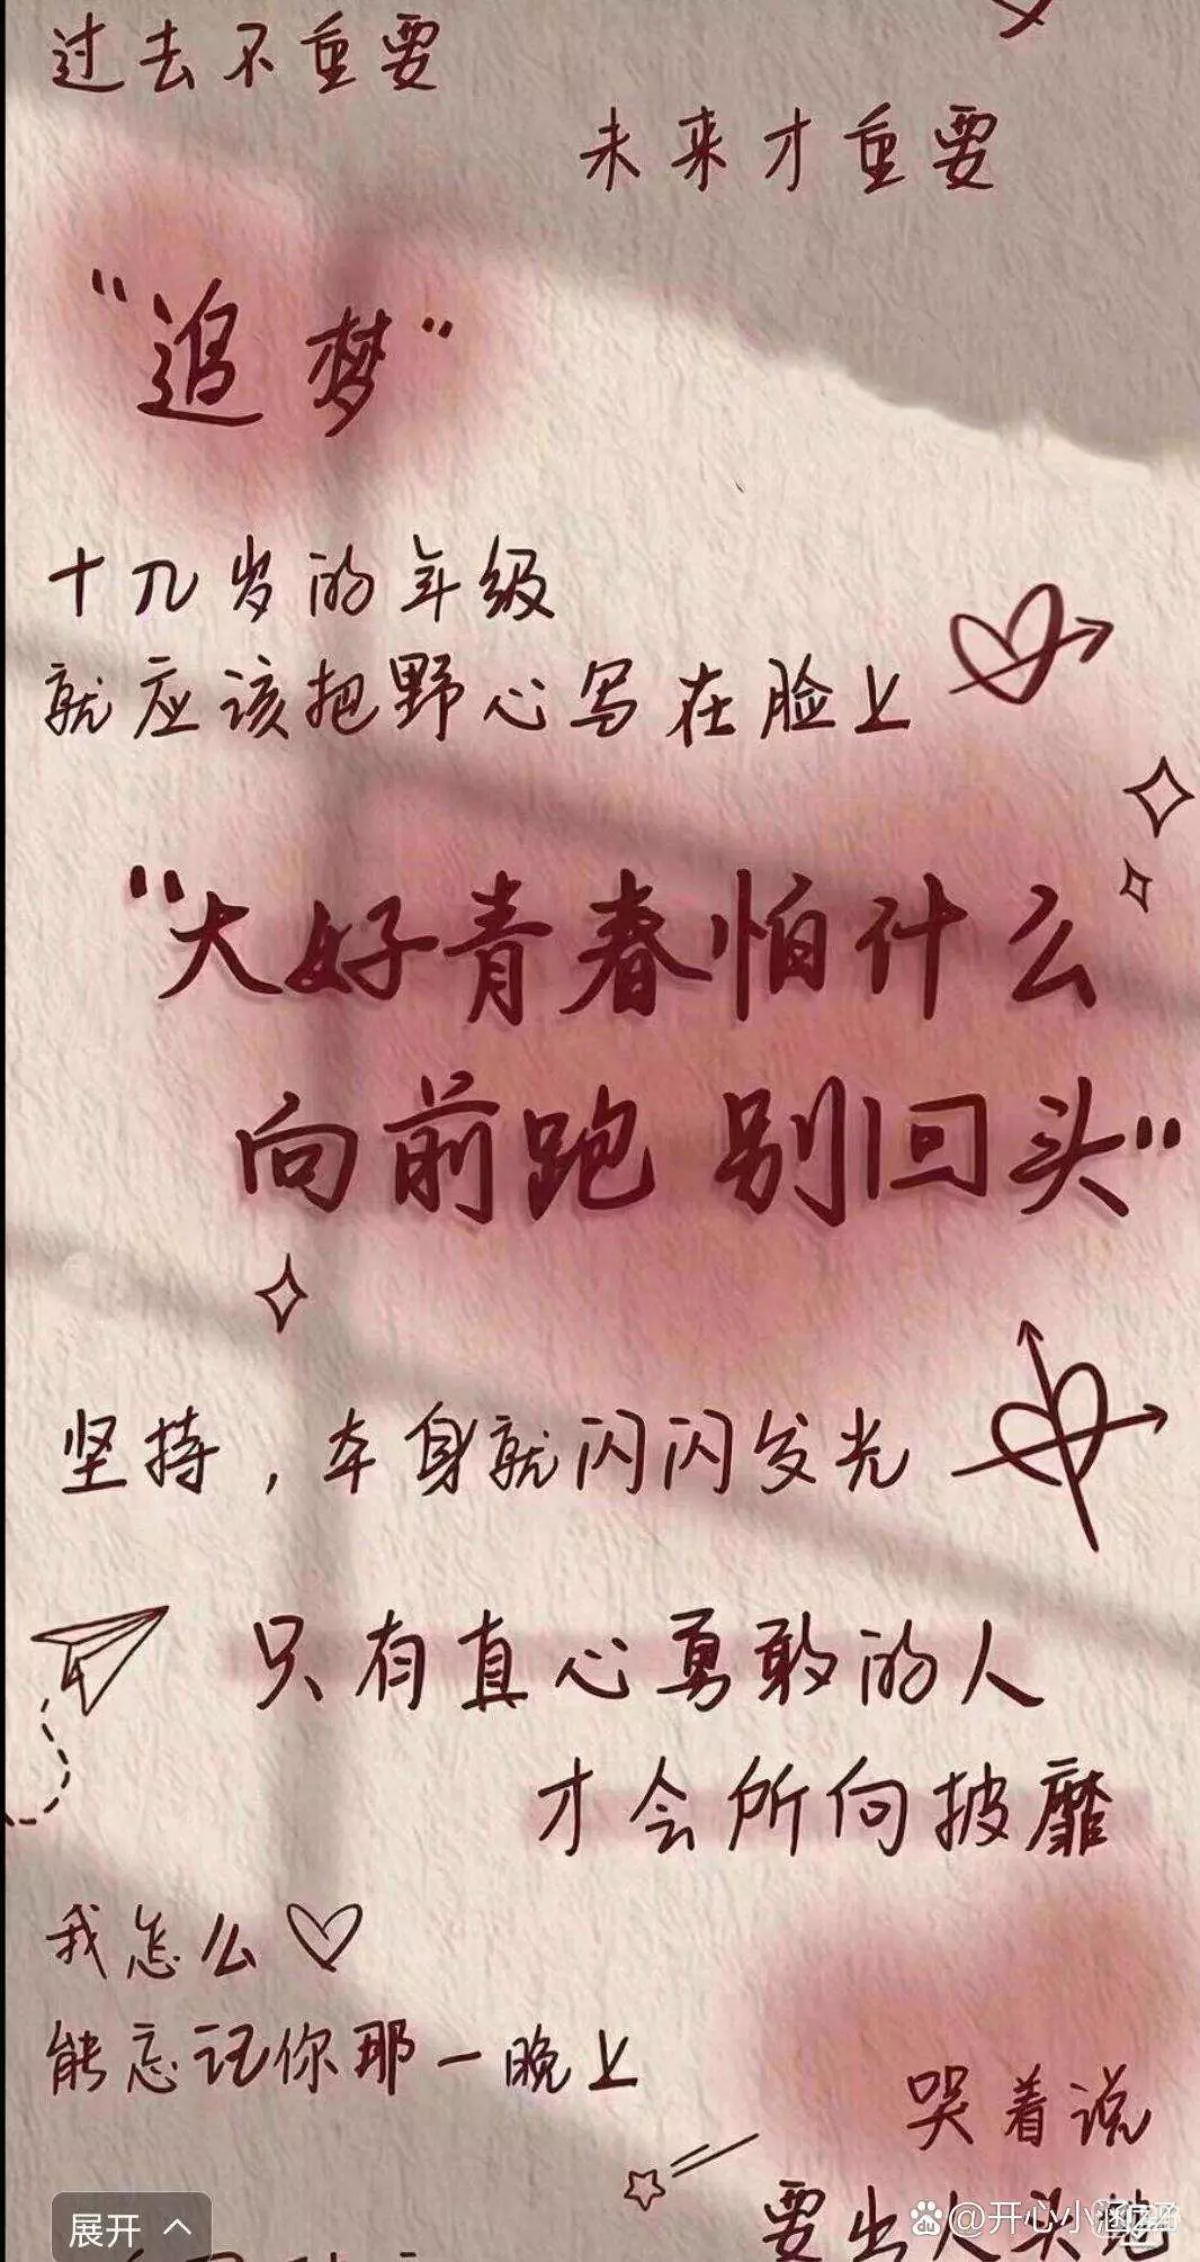 过去不重要
未来才重要
“追梦”
十几岁的年级
就应该把野心写在脸上
“大好青春怕什么
向前跑 别回头”
坚持，本身就闪闪发光
只有真心勇敢的人
才会所向披靡
我怎么
能忘记你那一晚上
哭着说
要出人头地
展开
@开心小涵